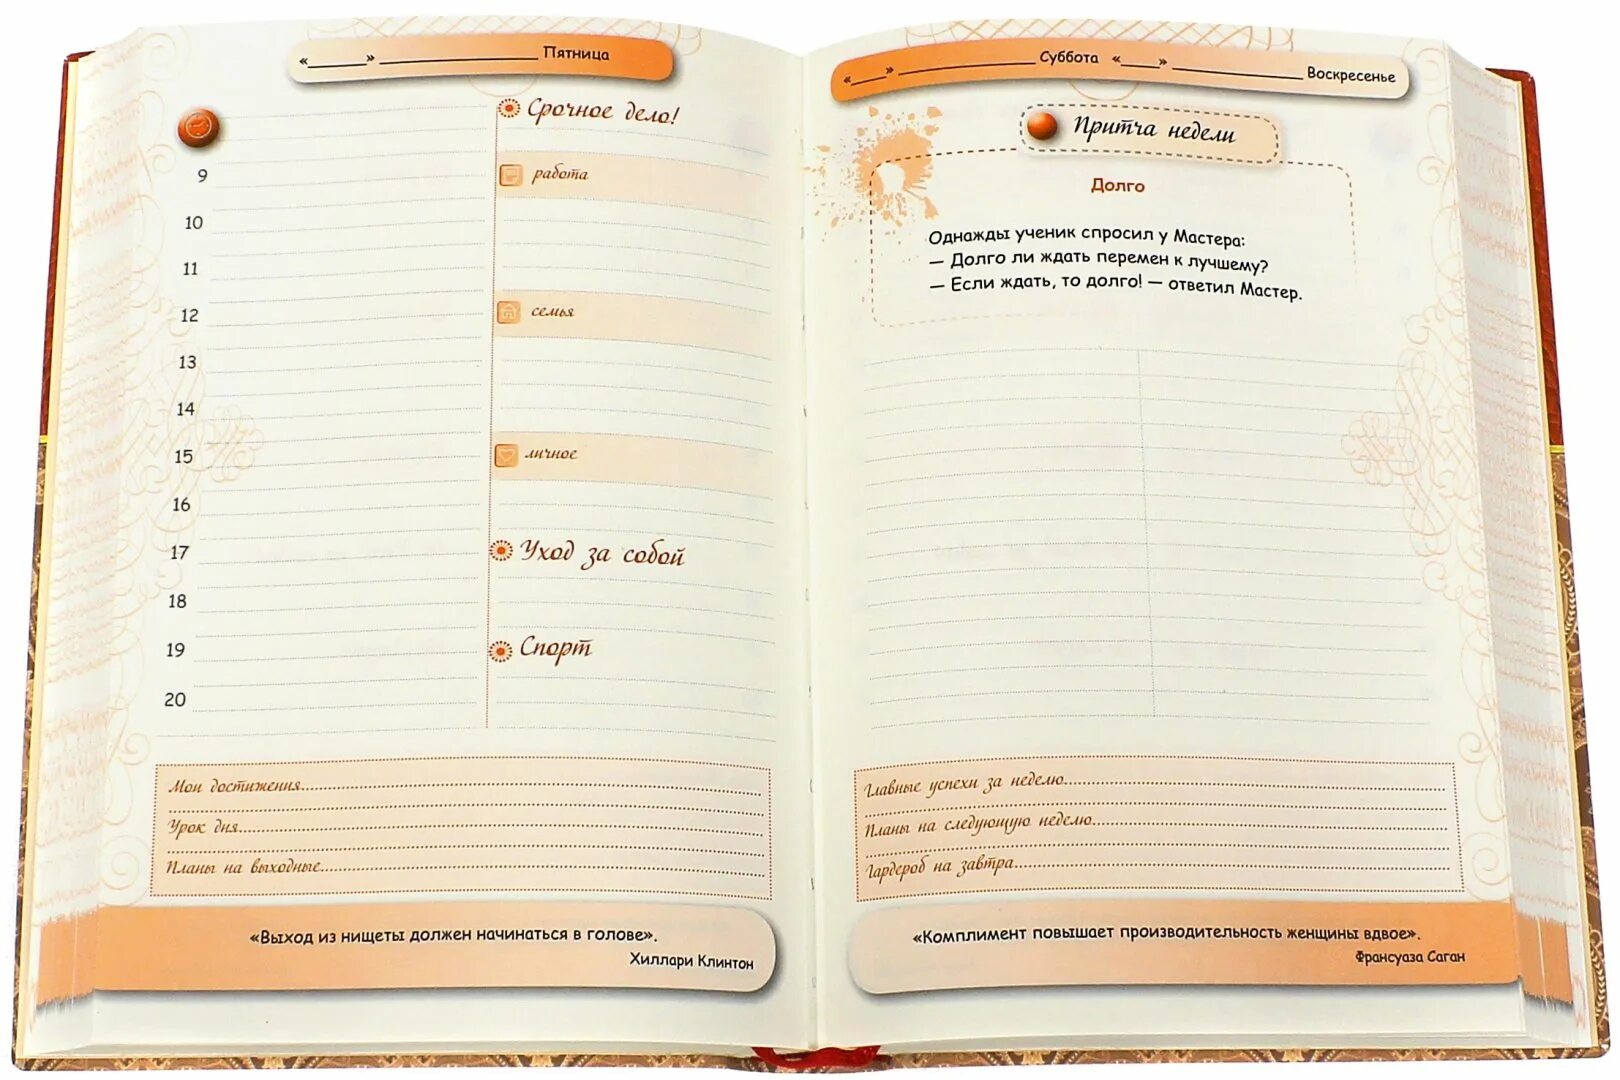 «______» ________________ Пятница
9
10
11
12
13
14
15
16
17
18
19
20
Срочное дело!
работа
семья
личное
Уход за собой
Спорт
Мои достижения
Урок дня
Планы на выходные
«Выход из нищеты должен начинаться в голове».
Хиллари Клинтон
«____» ______________ Суббота «____» ______________ Воскресенье
Притча недели
Долго
Однажды ученик спросил у Мастера:
— Долго ли ждать перемен к лучшему?
— Если ждать, то долго! — ответил Мастер.
Главные успехи за неделю
Планы на следующую неделю
Гардероб на завтра
«Комплимент повышает производительность женщины вдвое».
Франсуаза Саган